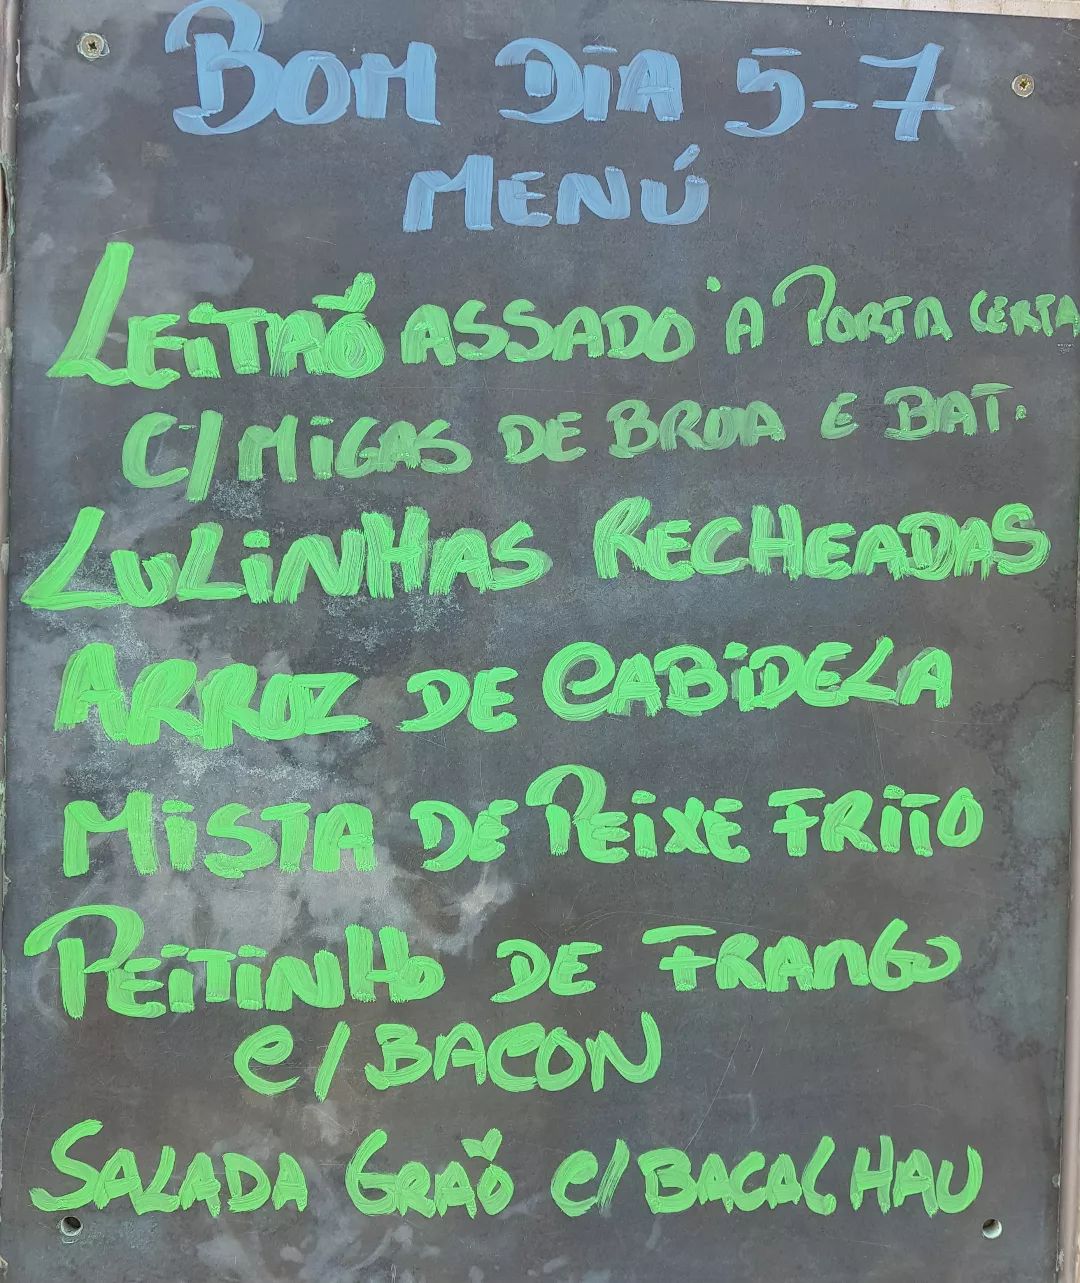 BOM DIA 5-7
MENÚ
LEITÃO ASSADO À PORTA CERTA
C/MIGAS DE BROA E BAT.
LULINHAS RECHEADAS
ARROZ DE CABIDELA
MISTA DE PEIXE FRITO
PEITINHO DE FRANGO
C/BACON
SALADA GRÃO C/BACALHAU